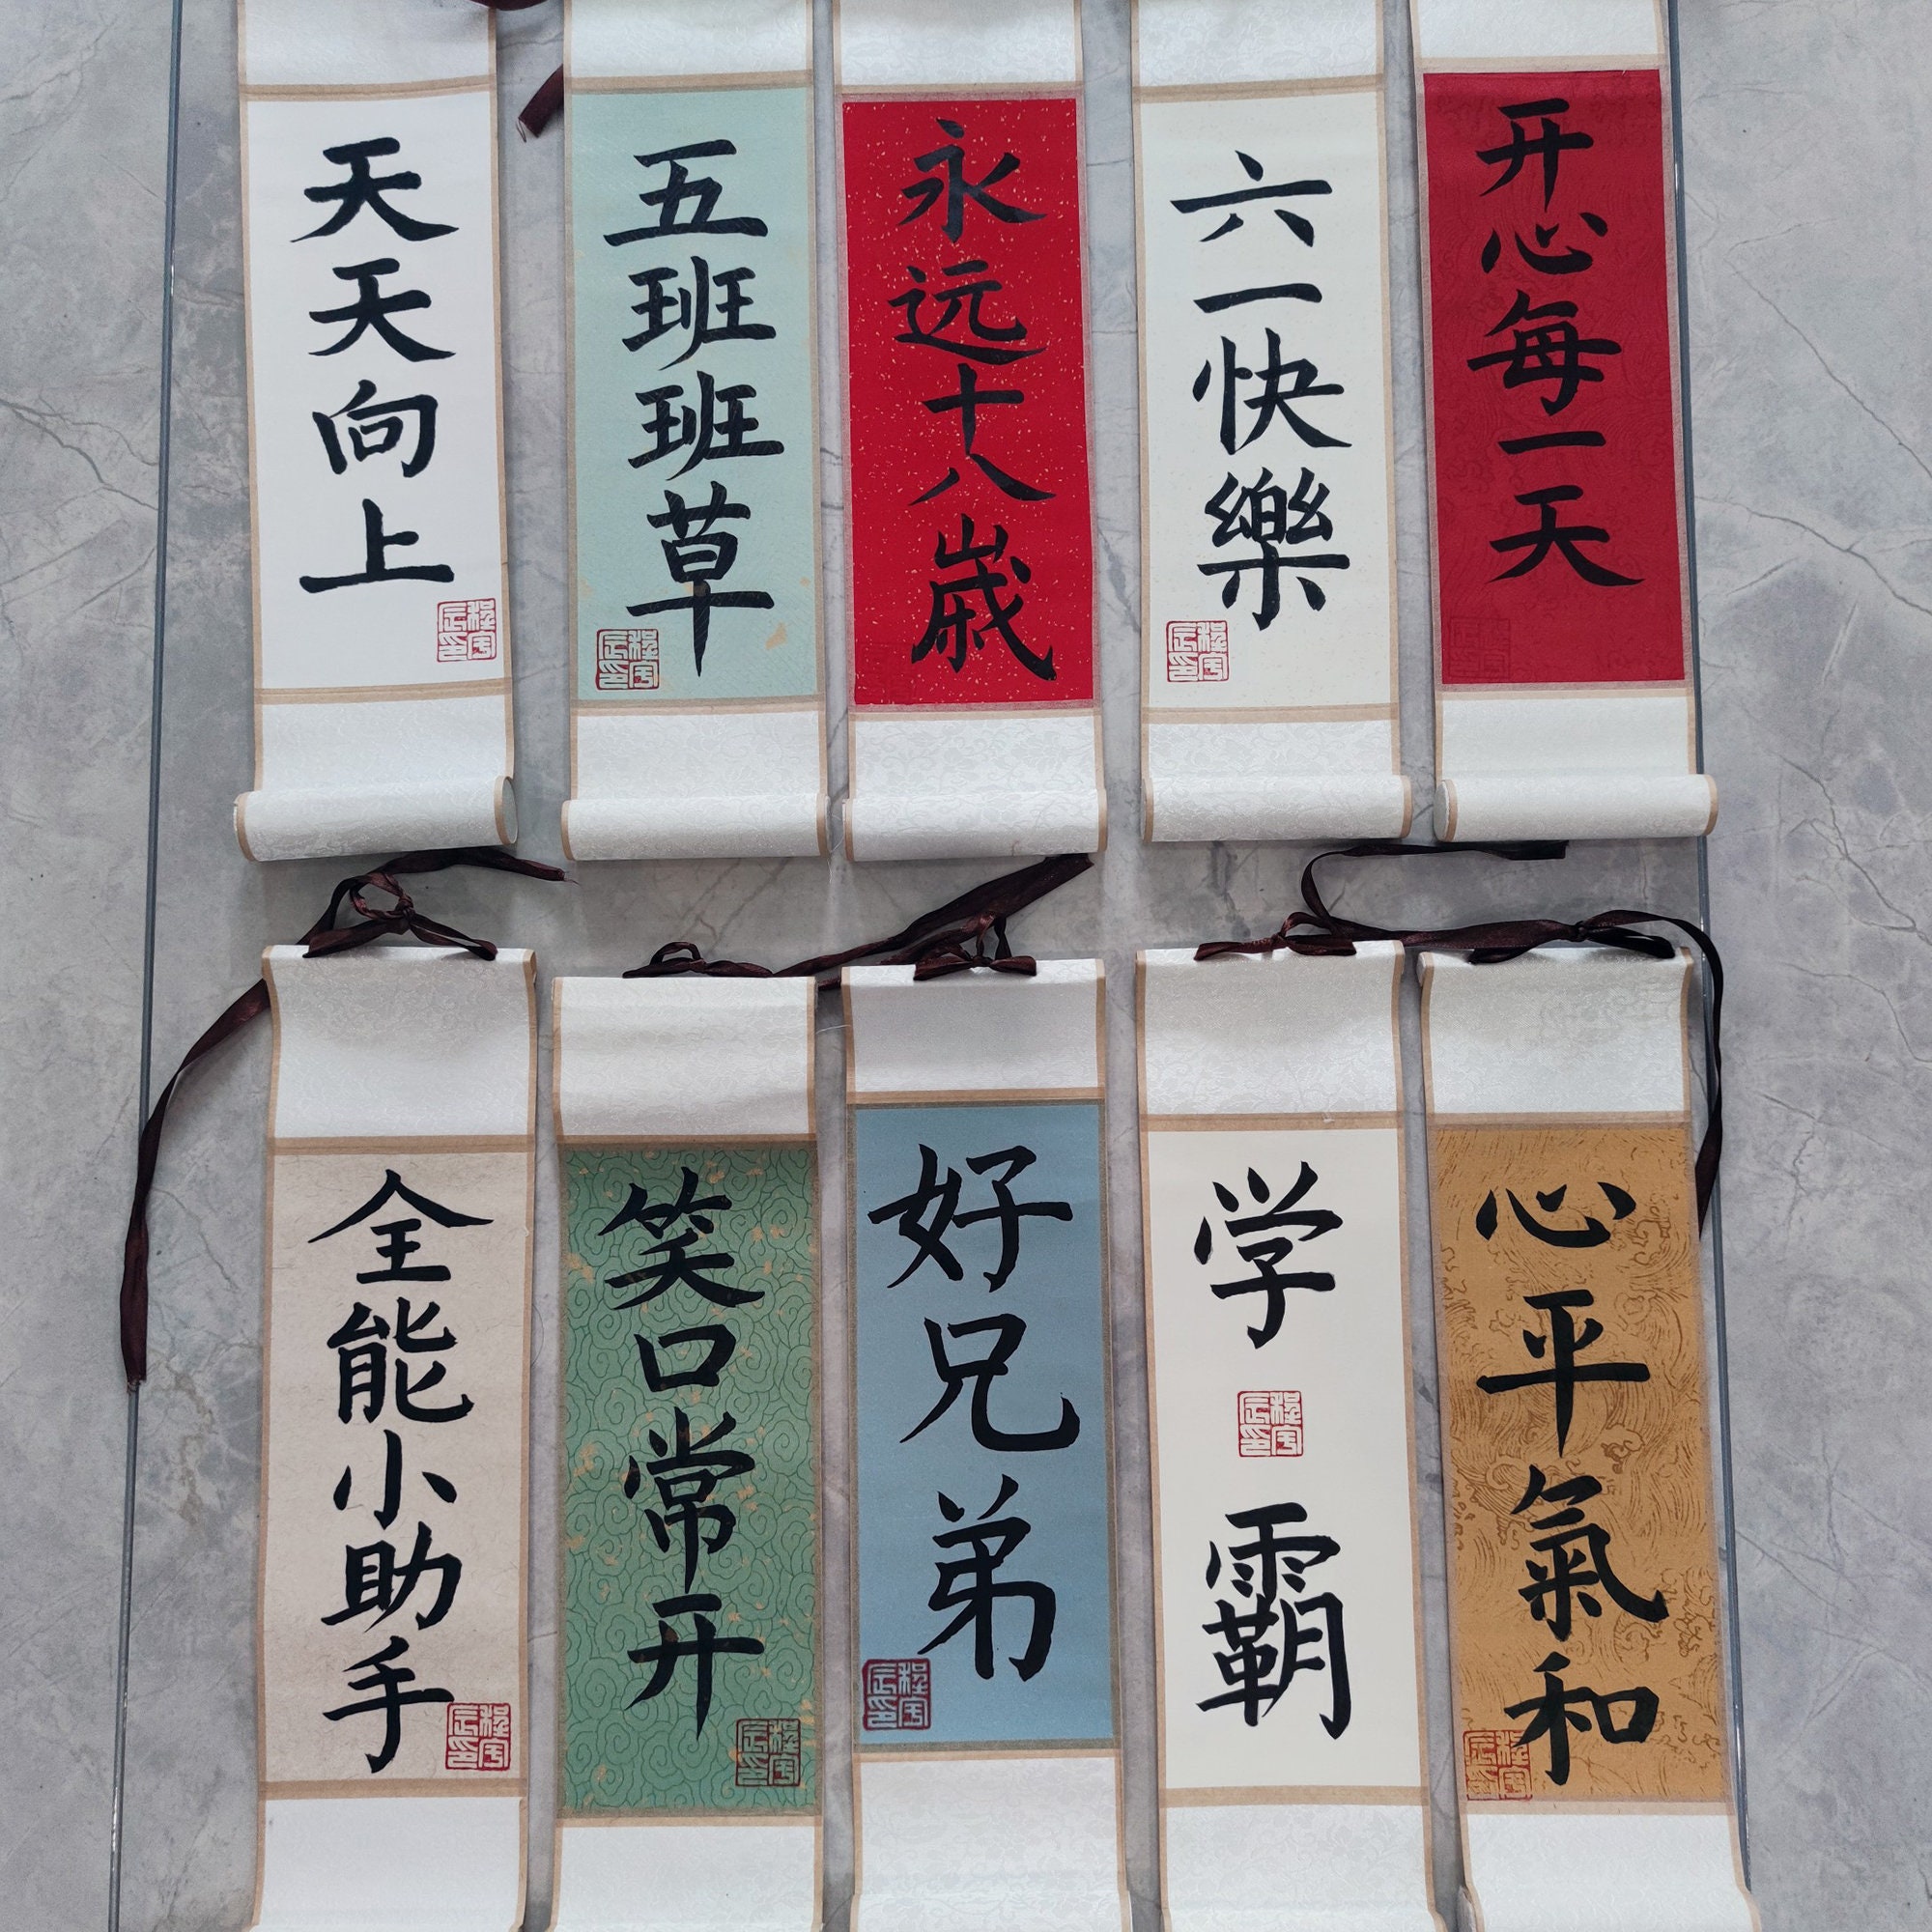 天天向上
五班班草
永远十八嵗
六一快樂
开心每一天
全能小助手
笑口常开
好兄弟
学霸
心平氣和